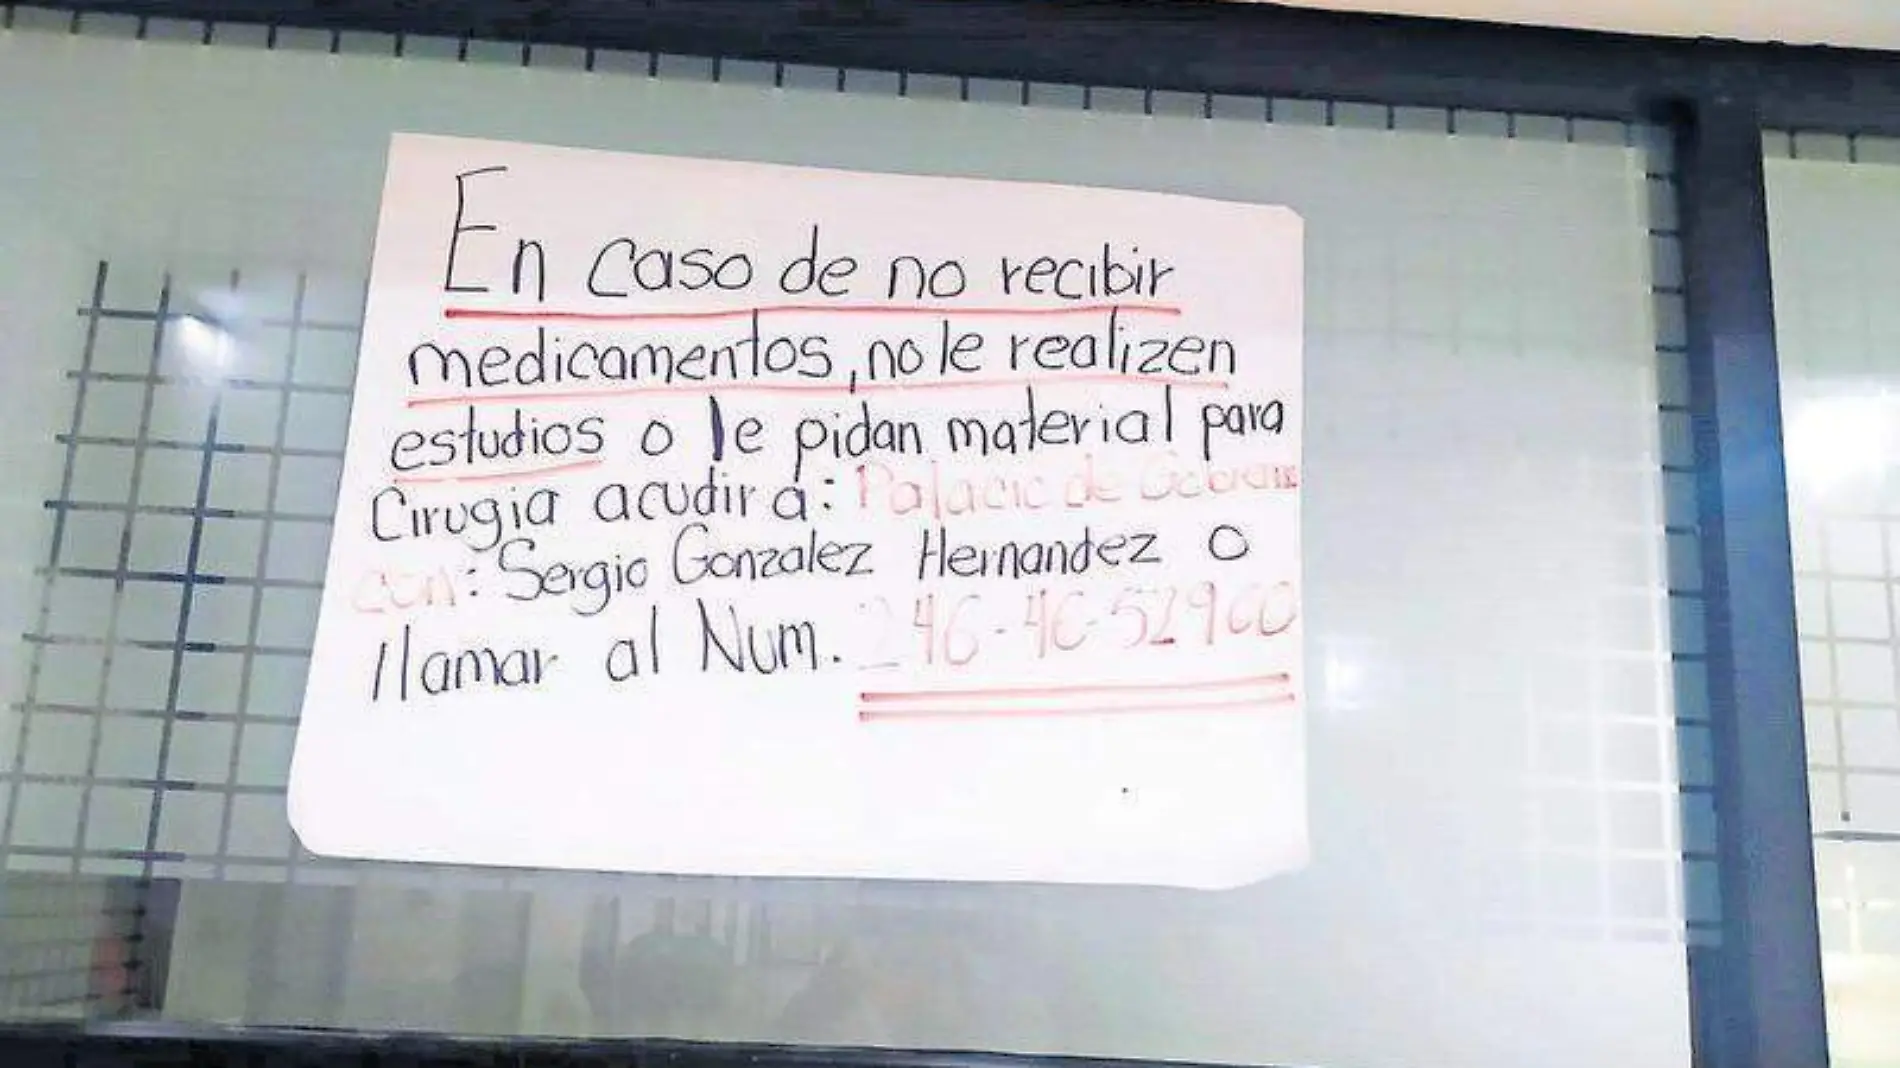 En caso de no recibir
medicamentos, no le realizen
estudios o le pidan material para
Cirugia acudir a: Palacio de Gobierno
con: Sergio Gonzalez Hernandez o
llamar al Num. 246-46-52900